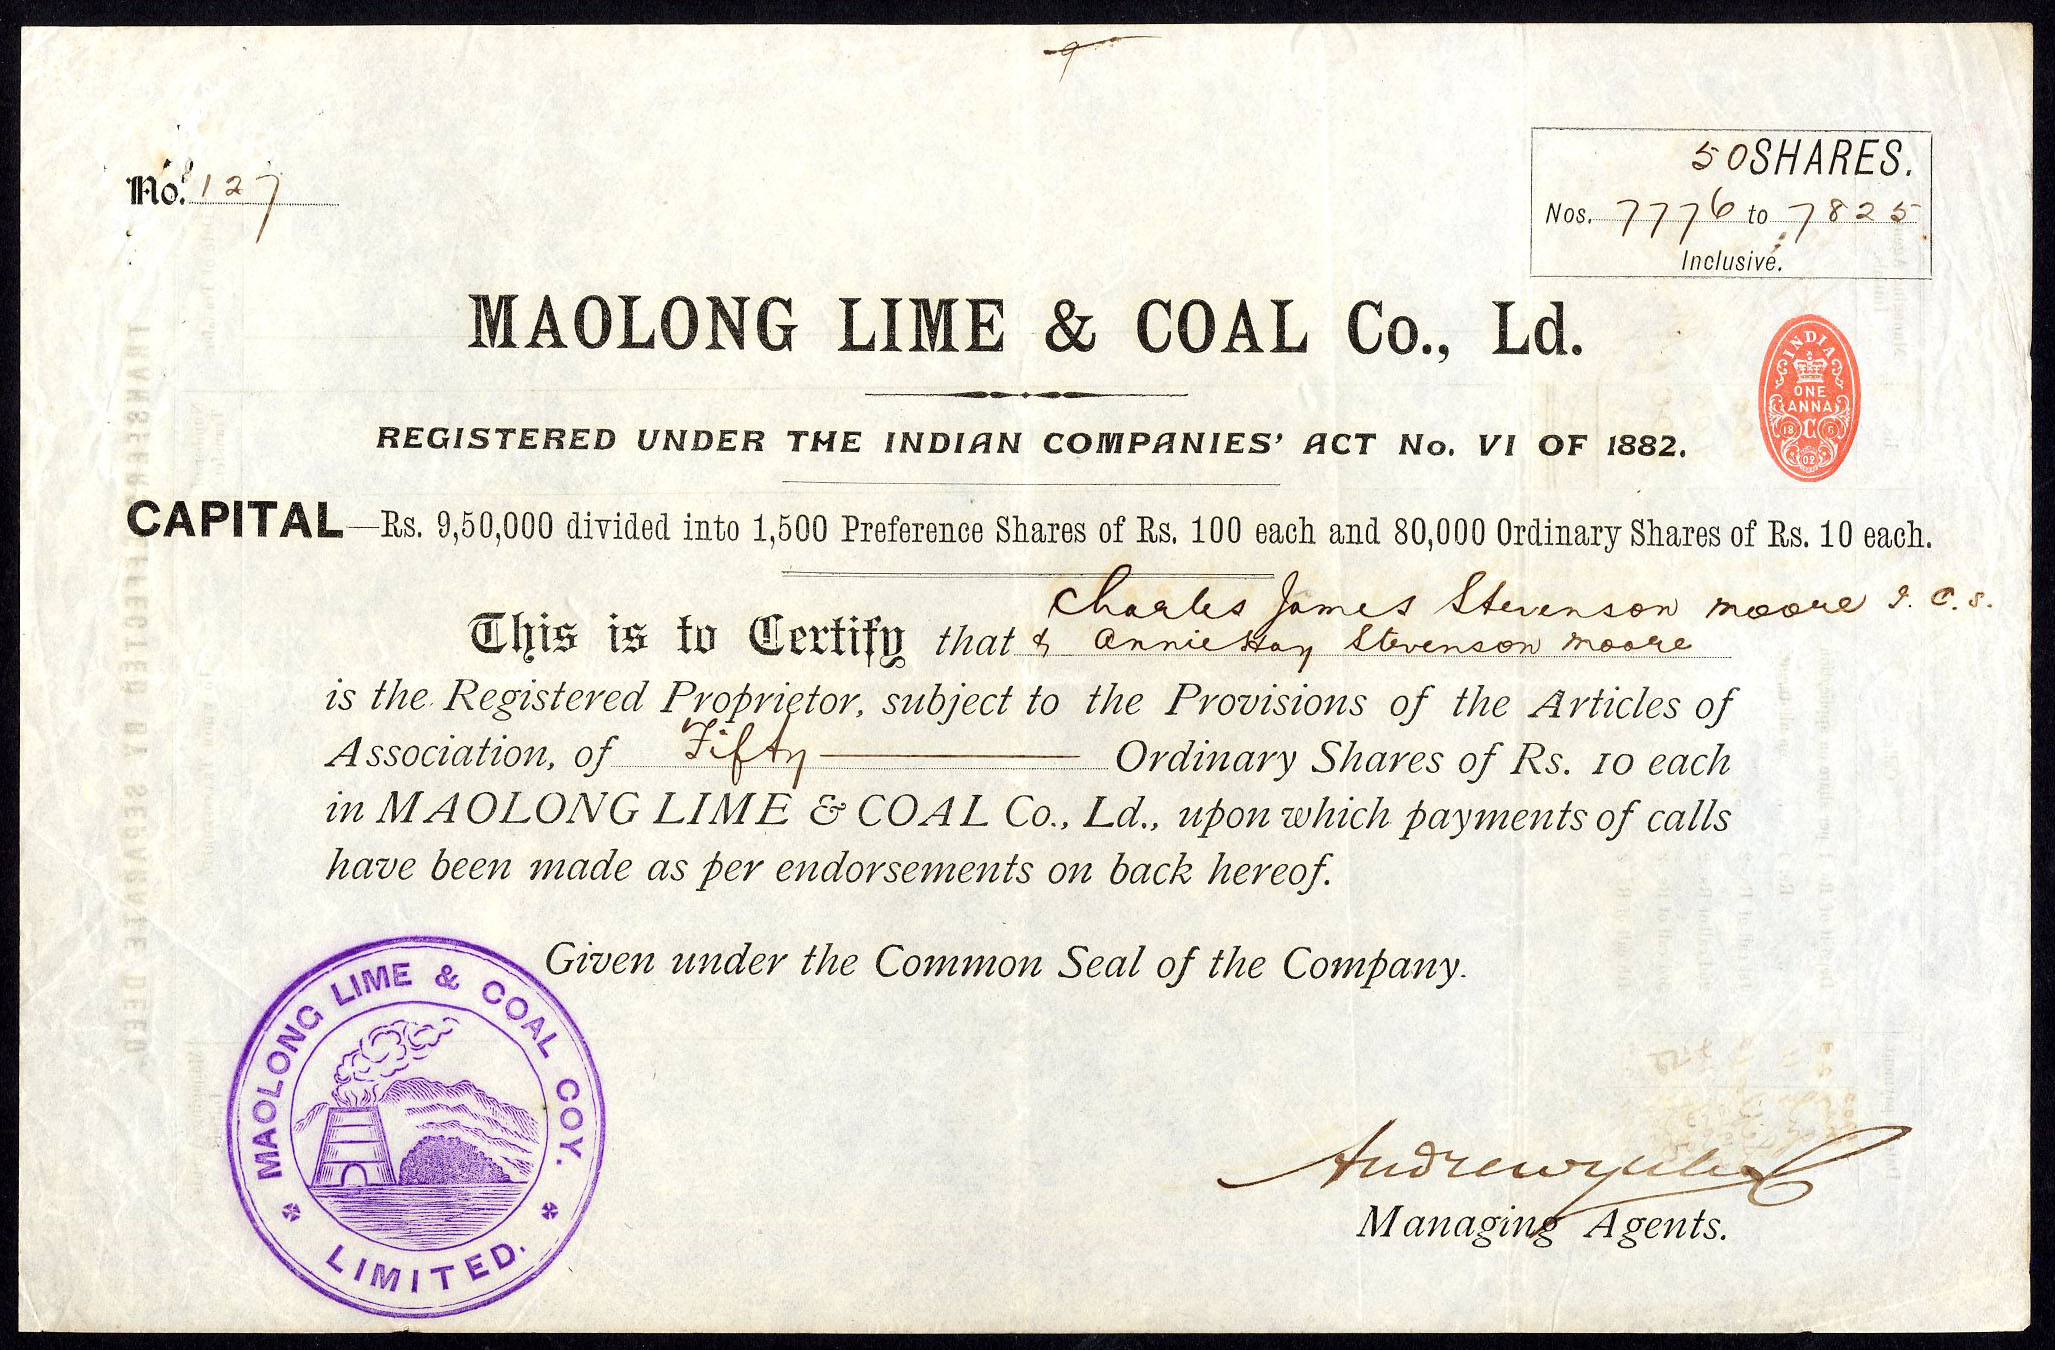 No. 127
50 SHARES.
Nos. 7776 to 7825
Inclusive.
MAOLONG LIME & COAL Co., Ld.
INDIA
ONE
ANNA
C
02
REGISTERED UNDER THE INDIAN COMPANIES' ACT No. VI OF 1882.
CAPITAL—Rs. 9,50,000 divided into 1,500 Preference Shares of Rs. 100 each and 80,000 Ordinary Shares of Rs. 10 each.
Charles James Stevenson Moore I. C. S.
This is to Certify that & Annie Hay Stevenson Moore
is the Registered Proprietor, subject to the Provisions of the Articles of
Association, of Fifty Ordinary Shares of Rs. 10 each
in MAOLONG LIME & COAL Co., Ld., upon which payments of calls
have been made as per endorsements on back hereof.
Given under the Common Seal of the Company.
MAOLONG LIME & COAL COY.
LIMITED.
Managing Agents.